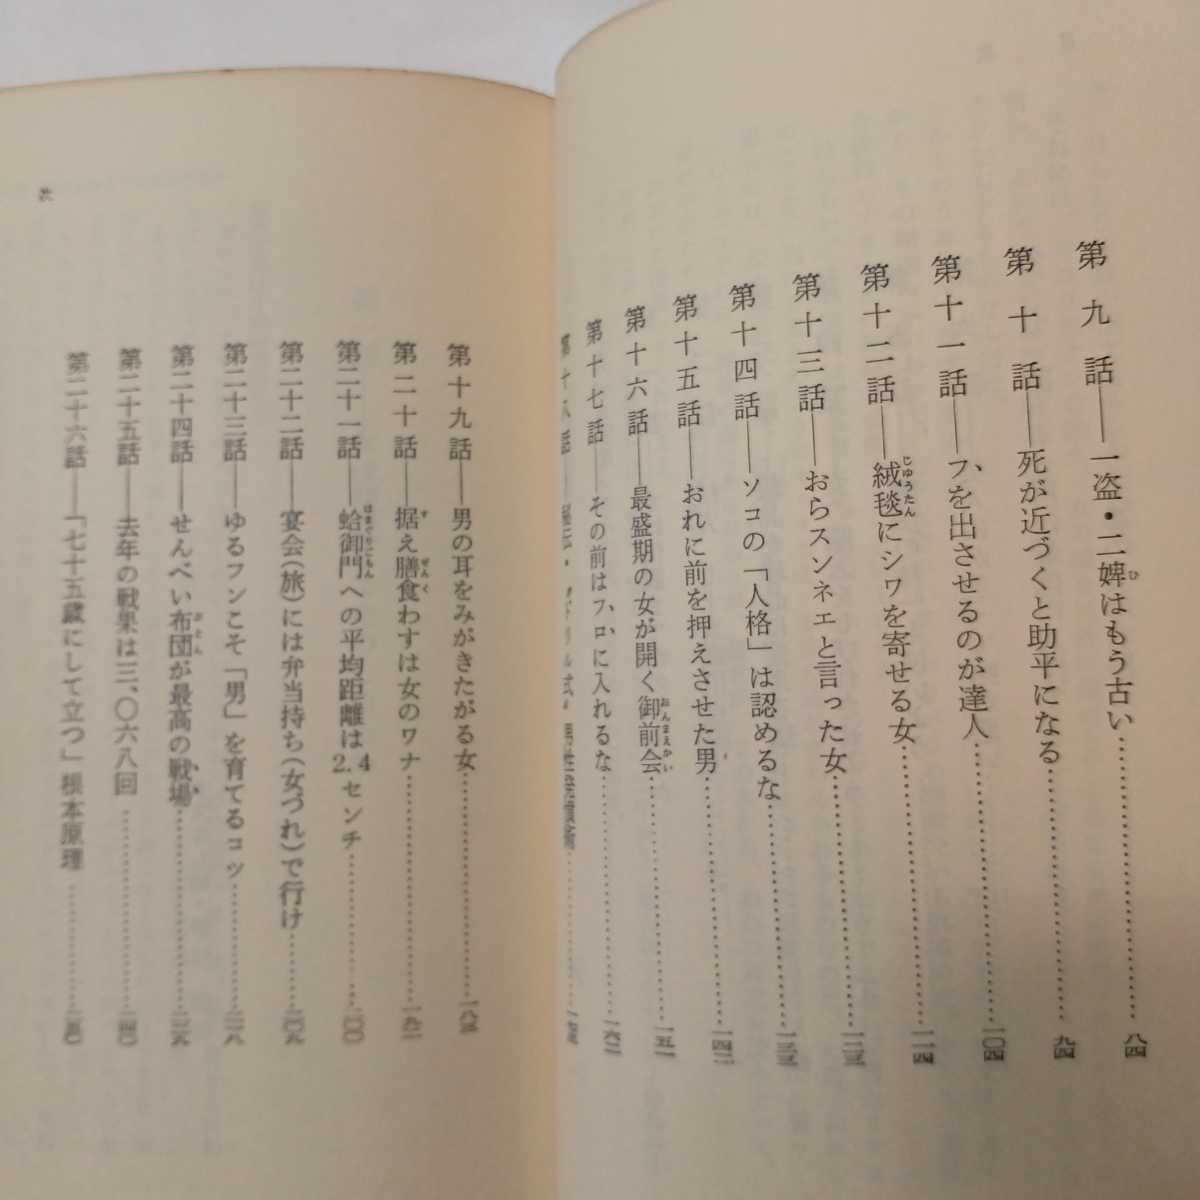 第九話――一盗・二婢はもう古い……………八四
第十話――死が近づくと助平になる……………九四
第十一話――フを出させるのが達人……………一〇四
第十二話――絨毯にシワを寄せる女……………一一四
第十三話――おらスンネエと言った女……………一二三
第十四話――ソコの「人格」は認めるな……………一三三
第十五話――おれに前を押えさせた男……………一四二
第十六話――最盛期の女が開く御前会……………一五一
第十七話――その前はフロに入れるな……………一六二
第十八話――
第十九話――男の耳をみがきたがる女……………一八三
第二十話――据え膳食わすは女のワナ……………一九一
第二十一話――蛤御門への平均距離は2.4センチ……………二〇〇
第二十二話――宴会(旅)には弁当持ち(女づれ)で行け……………二〇九
第二十三話――ゆるフンこそ「男」を育てるコツ……………二一八
第二十四話――せんべい布団が最高の戦場……………
第二十五話――去年の戦果は三、〇六八回……………
第二十六話――「七十五歳にして立つ」根本原理……………
次